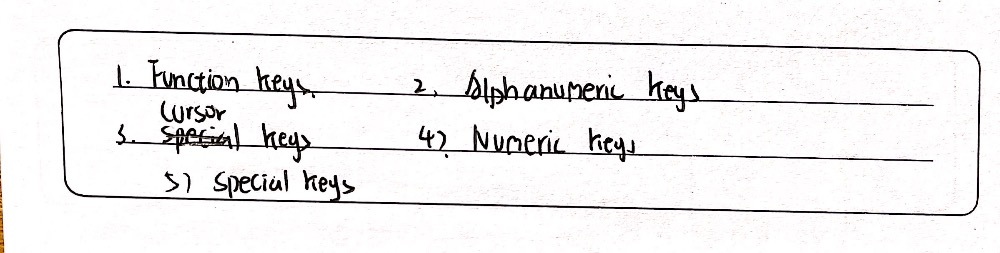 1. Function keys. 2. Alphanumeric keys
cursor
3. special keys 4) Numeric keys
5) special keys